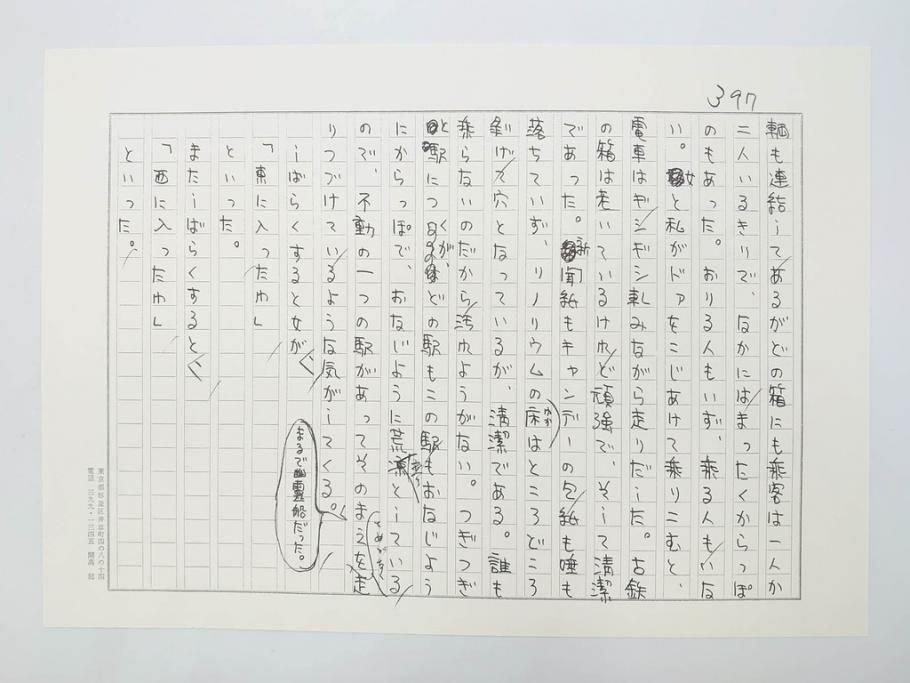 397
輌も連結してあるがどの箱にも乗客は一人か
二人いるきりで、なかにはまったくからっぽ
のもあった。おりる人もいず、乗る人もいな
い。女と私がドアをこじあけて乗りこむと、
電車はギシギシ軋みながら走りだした。古鉄
の箱は老いているけれど頑強で、そして清潔
であった。新聞紙もキャンデーの包紙も唾も
落ちていず、リノリウムの床はところどころ
剥げて穴となっているが、清潔である。誰も
乗らないのだから汚れようがない。つぎつぎ
と駅につくが、どの駅もこの駅もおなじよう
にからっぽで、おなじように荒涼としている
ので、不動の一つの駅があってそのまえを走
りつづけているような気がしてくる。
まるで幽霊船だった。
しばらくすると女が
「東に入ったわ」
といった。
またしばらくすると
「西に入ったわ」
といった。
東京都杉並区井草町四の八の十四
電話 三九九・一三四五 開高 健